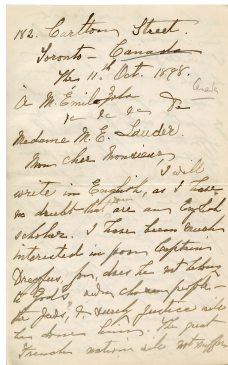 182. Carlton Street.
Toronto - Canada
The 11th Oct. 1898.
Canada
A M. Émile Zola
&c &c &c
Madame M. E. Lauder.
Mon cher Monsieur,
I will
write in English, as I have
no doubt that you are an English
scholar. I have been much
interested in poor Captain
Dreyfus, for, does he not belong
to God's own chosen people -
the Jews, & such justice
be done him. The great
French nation will not suffer